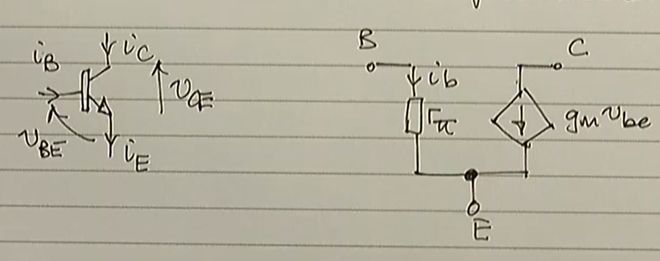 i_B
i_C
v_CE
v_BE
i_E
B
i_b
r_π
C
g_m v_be
E